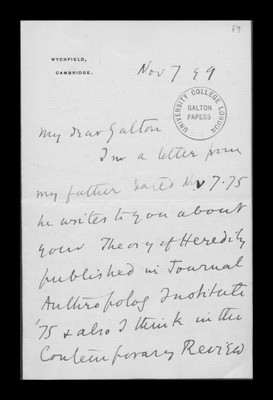 F9
WYCHFIELD,
CAMBRIDGE.
Nov 7 99
UNIVERSITY COLLEGE LONDON
GALTON
PAPERS
My dear Galton
In a letter from
my father dated Nov 7. 75
he writes to you about
your Theory of Heredity
published in Journal
Anthropolog Institute
'75 & also I think in the
Contemporary Review